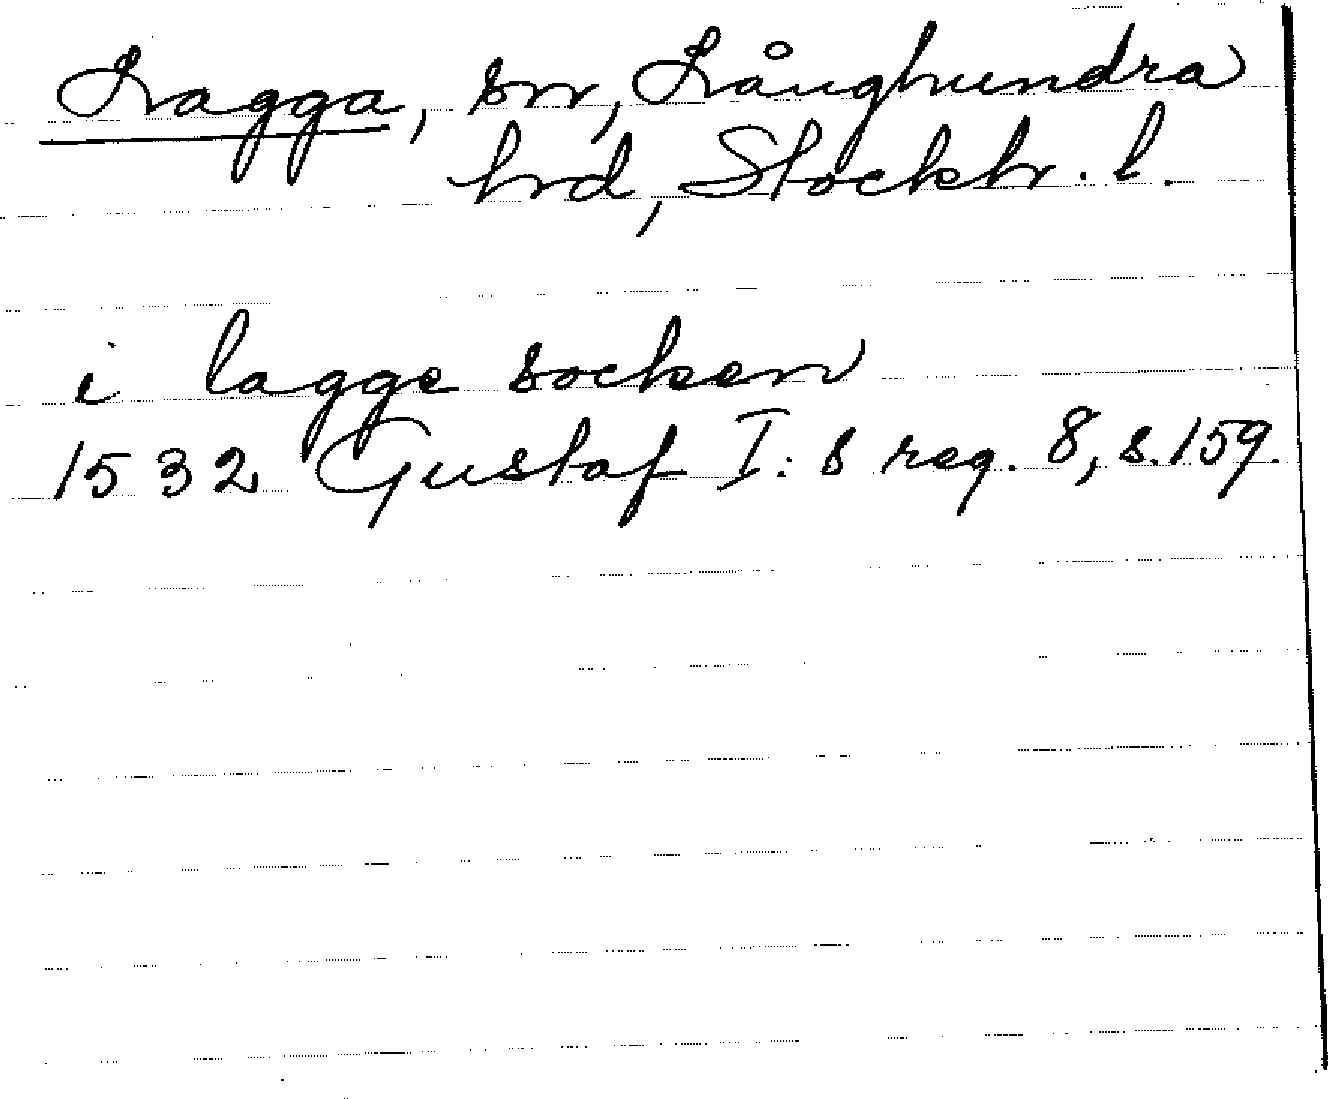 Lagga, sn, Långhundra
hrd, Stockh. l.
i lagge socken
1532 Gustaf I: s reg. 8, s. 159.